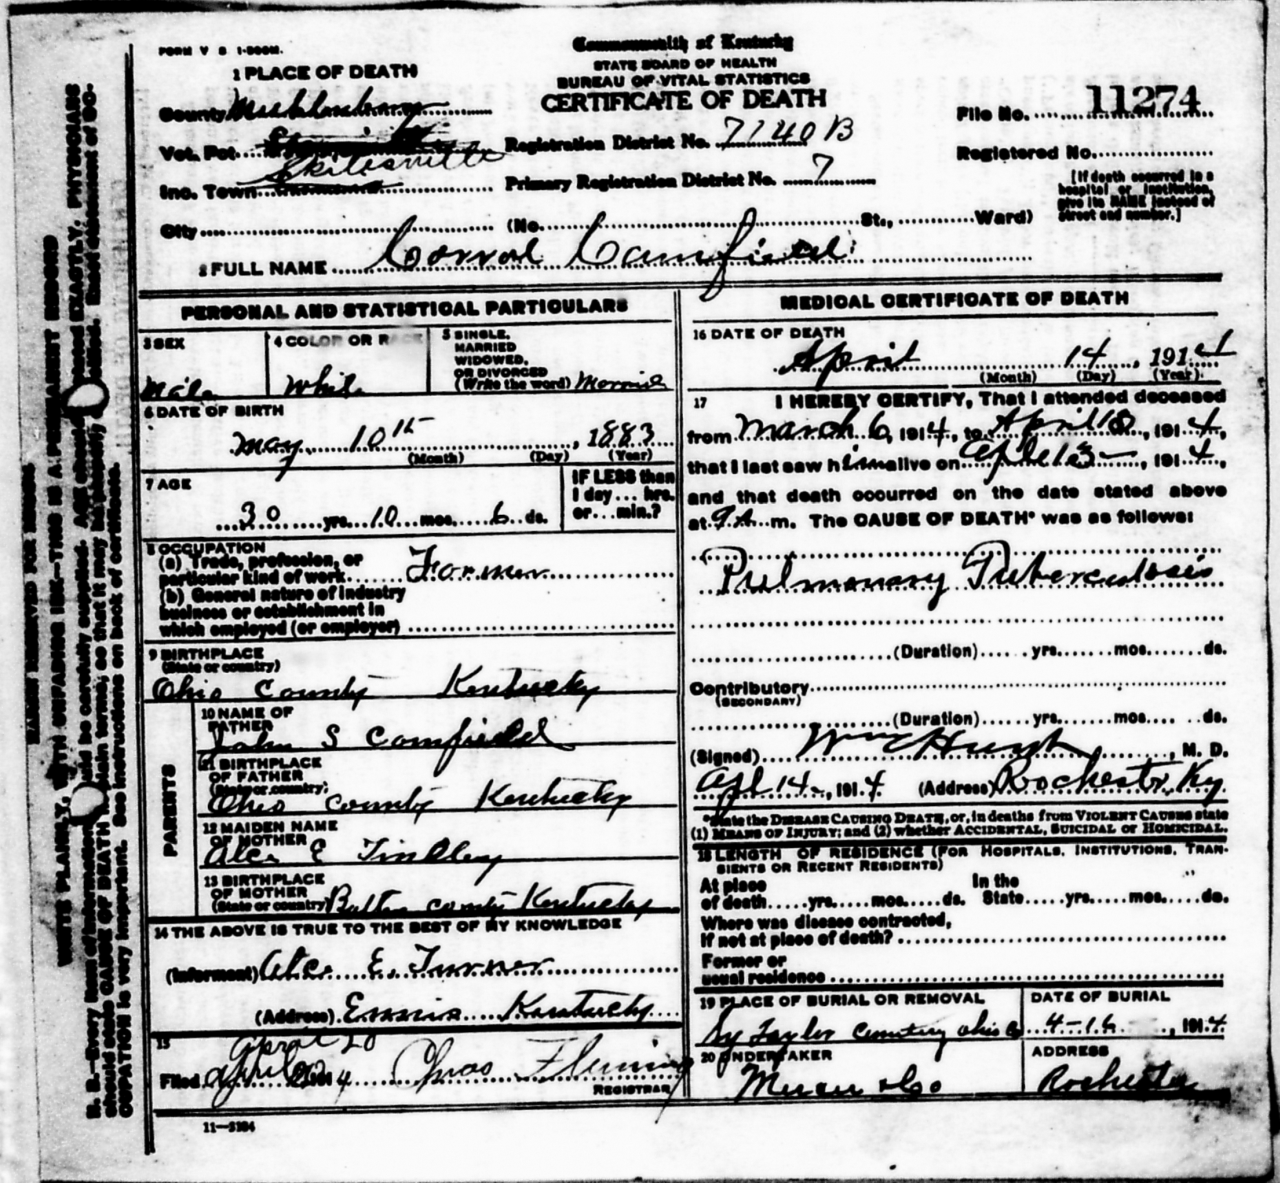 FORM V S 1-500M.
Commonwealth of Kentucky
STATE BOARD OF HEALTH
BUREAU OF VITAL STATISTICS
CERTIFICATE OF DEATH
File No. 11274
Registered No.
[If death occurred in a hospital or institution, give its NAME instead of street and number.]
1 PLACE OF DEATH
County Muhlenberg
Vot. Pct.
Skilesville
Inc. Town
Registration District No. 7140 B
Primary Registration District No. 7
City (No. St., Ward)
2 FULL NAME Corral Camfield
PERSONAL AND STATISTICAL PARTICULARS
3 SEX
Male
4 COLOR OR RACE
White
5 SINGLE,
MARRIED
WIDOWED,
OR DIVORCED
(Write the word) Married
6 DATE OF BIRTH
May 10th, 1883
(Month) (Day) (Year)
7 AGE
30 yrs. 10 mos. 6 ds.
IF LESS than
1 day ... hrs.
or ... min.?
8 OCCUPATION
(a) Trade, profession, or
particular kind of work Farmer
(b) General nature of industry
business or establishment in
which employed (or employer)
9 BIRTHPLACE
(State or country)
Ohio County Kentucky
PARENTS
10 NAME OF
FATHER
John S Camfield
11 BIRTHPLACE
OF FATHER
(State or country)
Ohio County Kentucky
12 MAIDEN NAME
OF MOTHER
Alce E Tindley
13 BIRTHPLACE
OF MOTHER
(State or country) Butler County Kentucky
14 THE ABOVE IS TRUE TO THE BEST OF MY KNOWLEDGE
(Informant) Alce E. Turner
(Address) Ennis Kentucky
15
April 20
Filed April 1914 Chas Fleming
REGISTRAR
11-3184
MEDICAL CERTIFICATE OF DEATH
16 DATE OF DEATH
April 14, 1914
(Month) (Day) (Year)
17 I HEREBY CERTIFY, That I attended deceased
from March 6, 1914, to April 13, 1914,
that I last saw him alive on Apl 13, 1914,
and that death occurred on the date stated above
at 9 A. m. The CAUSE OF DEATH* was as follows:
Pulmonary Tuberculosis
(Duration) yrs. mos. ds.
Contributory
(SECONDARY)
(Duration) yrs. mos. ds.
(Signed) , M. D.
Apl 14, 1914 (Address) Rochester, Ky
*State the DISEASE CAUSING DEATH, or, in deaths from VIOLENT CAUSES state
(1) MEANS OF INJURY; and (2) whether ACCIDENTAL, SUICIDAL or HOMICIDAL.
18 LENGTH OF RESIDENCE (FOR HOSPITALS, INSTITUTIONS, TRAN-
SIENTS OR RECENT RESIDENTS)
At place
of death yrs. mos. ds.
In the
State yrs. mos. ds.
Where was disease contracted,
If not at place of death?
Former or
usual residence
19 PLACE OF BURIAL OR REMOVAL
Sy Taylor Cemetery Ohio Co
DATE OF BURIAL
4-16, 1914
20 UNDERTAKER
& Co
ADDRESS
Rochester
MARGIN RESERVED FOR BINDING
WRITE PLAINLY, WITH UNFADING INK—THIS IS A PERMANENT RECORD
N. B.—Every item of information should be carefully supplied. AGE should be stated EXACTLY. PHYSICIANS
should state CAUSE OF DEATH in plain terms, so that it may be properly classified. Exact statement of OC-
CUPATION is very important. See instructions on back of certificate.